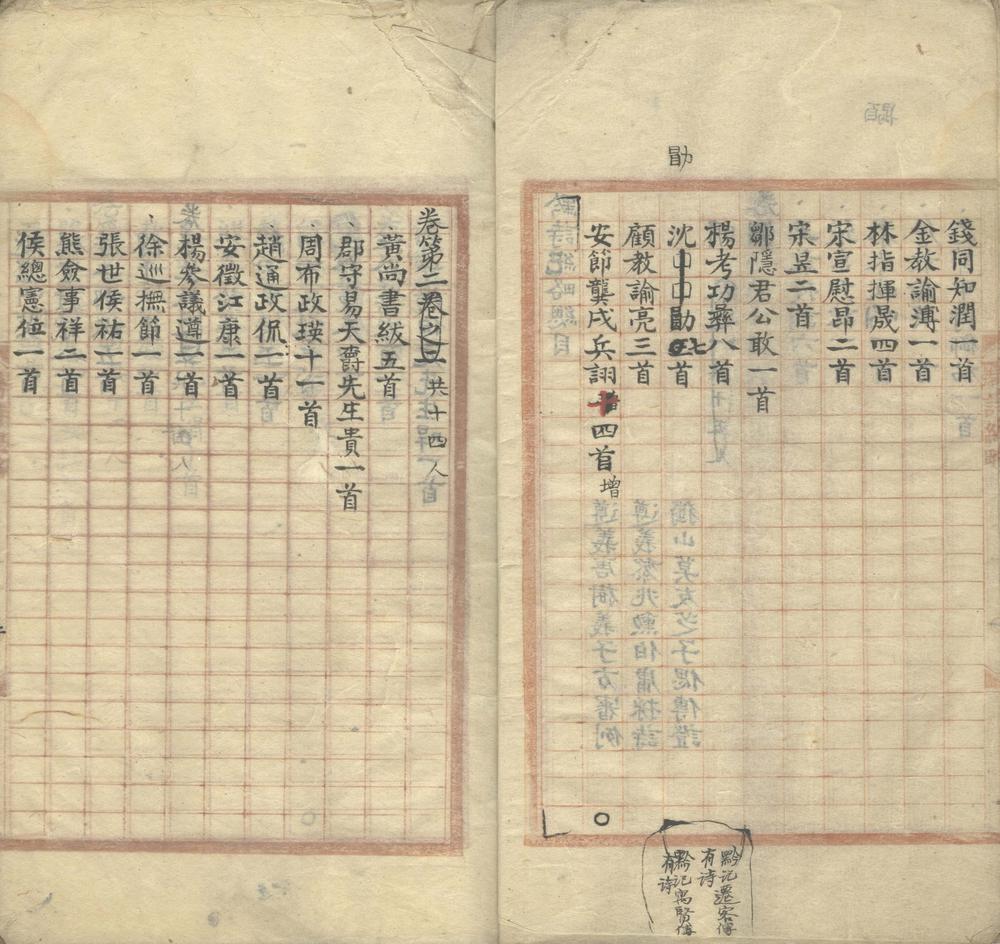 錢同知潤一首
金敎諭溥一首
林指揮晟四首
宋宣慰昂二首
宋昱二首
鄒隱君公敢一首
楊考功彝八首
勖
沈勖七首
顧教諭亮三首
安節龔戌兵詡四首
增
黔记遷客傳
有诗
黔记寓賢傳
有诗
卷第二 共十四人
黃尚書紱五首
郡守易天爵先生貴一首
周布政瑛十一首
趙通政侃一首
安徵江康一首
楊參議遵一首
徐巡撫節一首
張世侯祐一首
熊僉事祥二首
侯總憲位一首